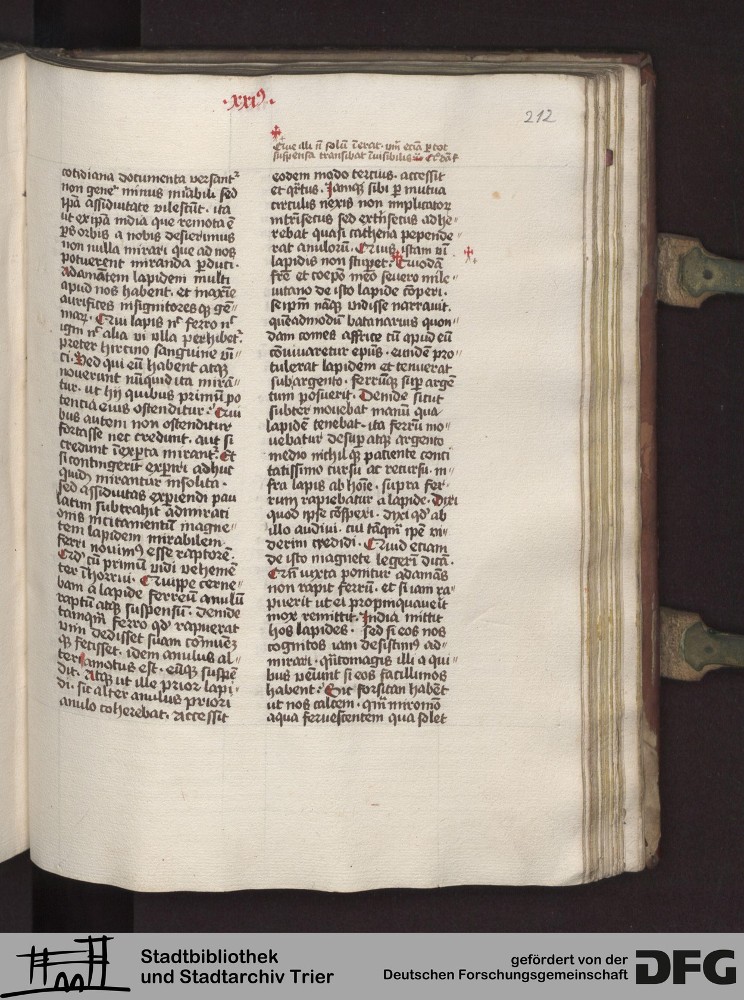 .xxiꝰ.
212
Que illi nͦ solū īerat. vm̄ eciā ꝑ tot
suspensa transibat īuisibilis
cotidiana documenta versantʳ
non geneʳ minus mirabili sed
ip̄a assiduitate vilescūt. ita
ut ex ip̄a india que remota ē
ꝑs orbis a nobis desierimus
non nulla mirari que ad nos
potuerunt miranda ꝑduci.
Adamātem lapidem multi
apud nos habent. et maxīe
aurifices insignitores qꝫ gē-
maꝝ. Qui lapis nͨ ferro nͨ
igni nͨ alia vi vlla perhibetʳ
preter hircino sanguine vī-
ci. Sed qui eū habent atqꝫ
noverunt nūquid ita mirā-
tur. ut hij quibus primū po
tentia eius ostenditur. Qui
bus autem non ostenditur
fortasse nec credunt. aut si
credunt īexꝑta mirantʳ. Et
si contingerit exꝑiri adhuc
quidē mirantur insolita.
sed assiduitas exꝑiendi pau
latim subtrahit admirati
onis incitamentū magne-
tem lapidem mirabilem
ferri novimꝰ esse raptorē.
Qd' cū primū vidi vehemē
ter īhorrui. Quippe cerne-
bam a lapide ferreū anulū
raptū atqꝫ suspensū. deinde
tamqm̄ ferro qd' rapuerat
vim dedisset suam cōmuēꝫ
qꝫ fecisset. idem anulus al-
teri amotus est. eūqꝫ suspē
dit. Atqꝫ ut ille prior lapi-
di. sic alter anulus priori
anulo coherebat. Accessit
eodem modo tercius. accessit
et qͣrtus. Iamqꝫ sibi ꝑ mutua
circulis nexis non implicator
intrīsecus sed extrīsecus adhe-
rebat quasi cathena pepende-
rat anulorū. Quis istam vī
lapidis non stupet. Quodā
frē et coepō meō severo mile-
vitano de isto lapide cōperi.
Seipm̄ nāqꝫ vidisse narravit.
quēadmodū batanarius quon-
dam comes affrice cū apud eū
cōvivaretur epūs. eundē pro-
tulerat lapidem et tenuerat
sub argento. ferrūqꝫ suꝑ argē
tum posuerit. Deinde sicut
subter movebat manū qua
lapidē tenebat. ita ferrū mo-
vebatur desuꝑ atqꝫ argento
medio nichilqꝫ patiente conci
tatissimo cursu ac recursu. in-
fra lapis ab hoīe. supra fer-
rum rapiebatur a lapide. Dixi
quod ipse cōspexi. dixi qd' ab
illo audivi. cui tāqm̄ ip̄e vi-
derim credidi. Quid etiam
de isto magnete legerī dicā.
Qn̄ iuxta ponitur adamās
non rapit ferrū. et si iam ra-
puerit ut ei propinquaverit
mox remittit. India mittit
hos lapides. sed si eos nos
cognitos iam desistimꝰ ad-
mirari. qͣntomagis illi a qui-
bus veniunt si eos facillimos
habent. Sic forsitan habēt
ut nos calcem. qm̄ miromō
aqua fervescentem qua solet
Stadtbibliothek
und Stadtarchiv Trier
gefördert von der
Deutschen Forschungsgemeinschaft
DFG